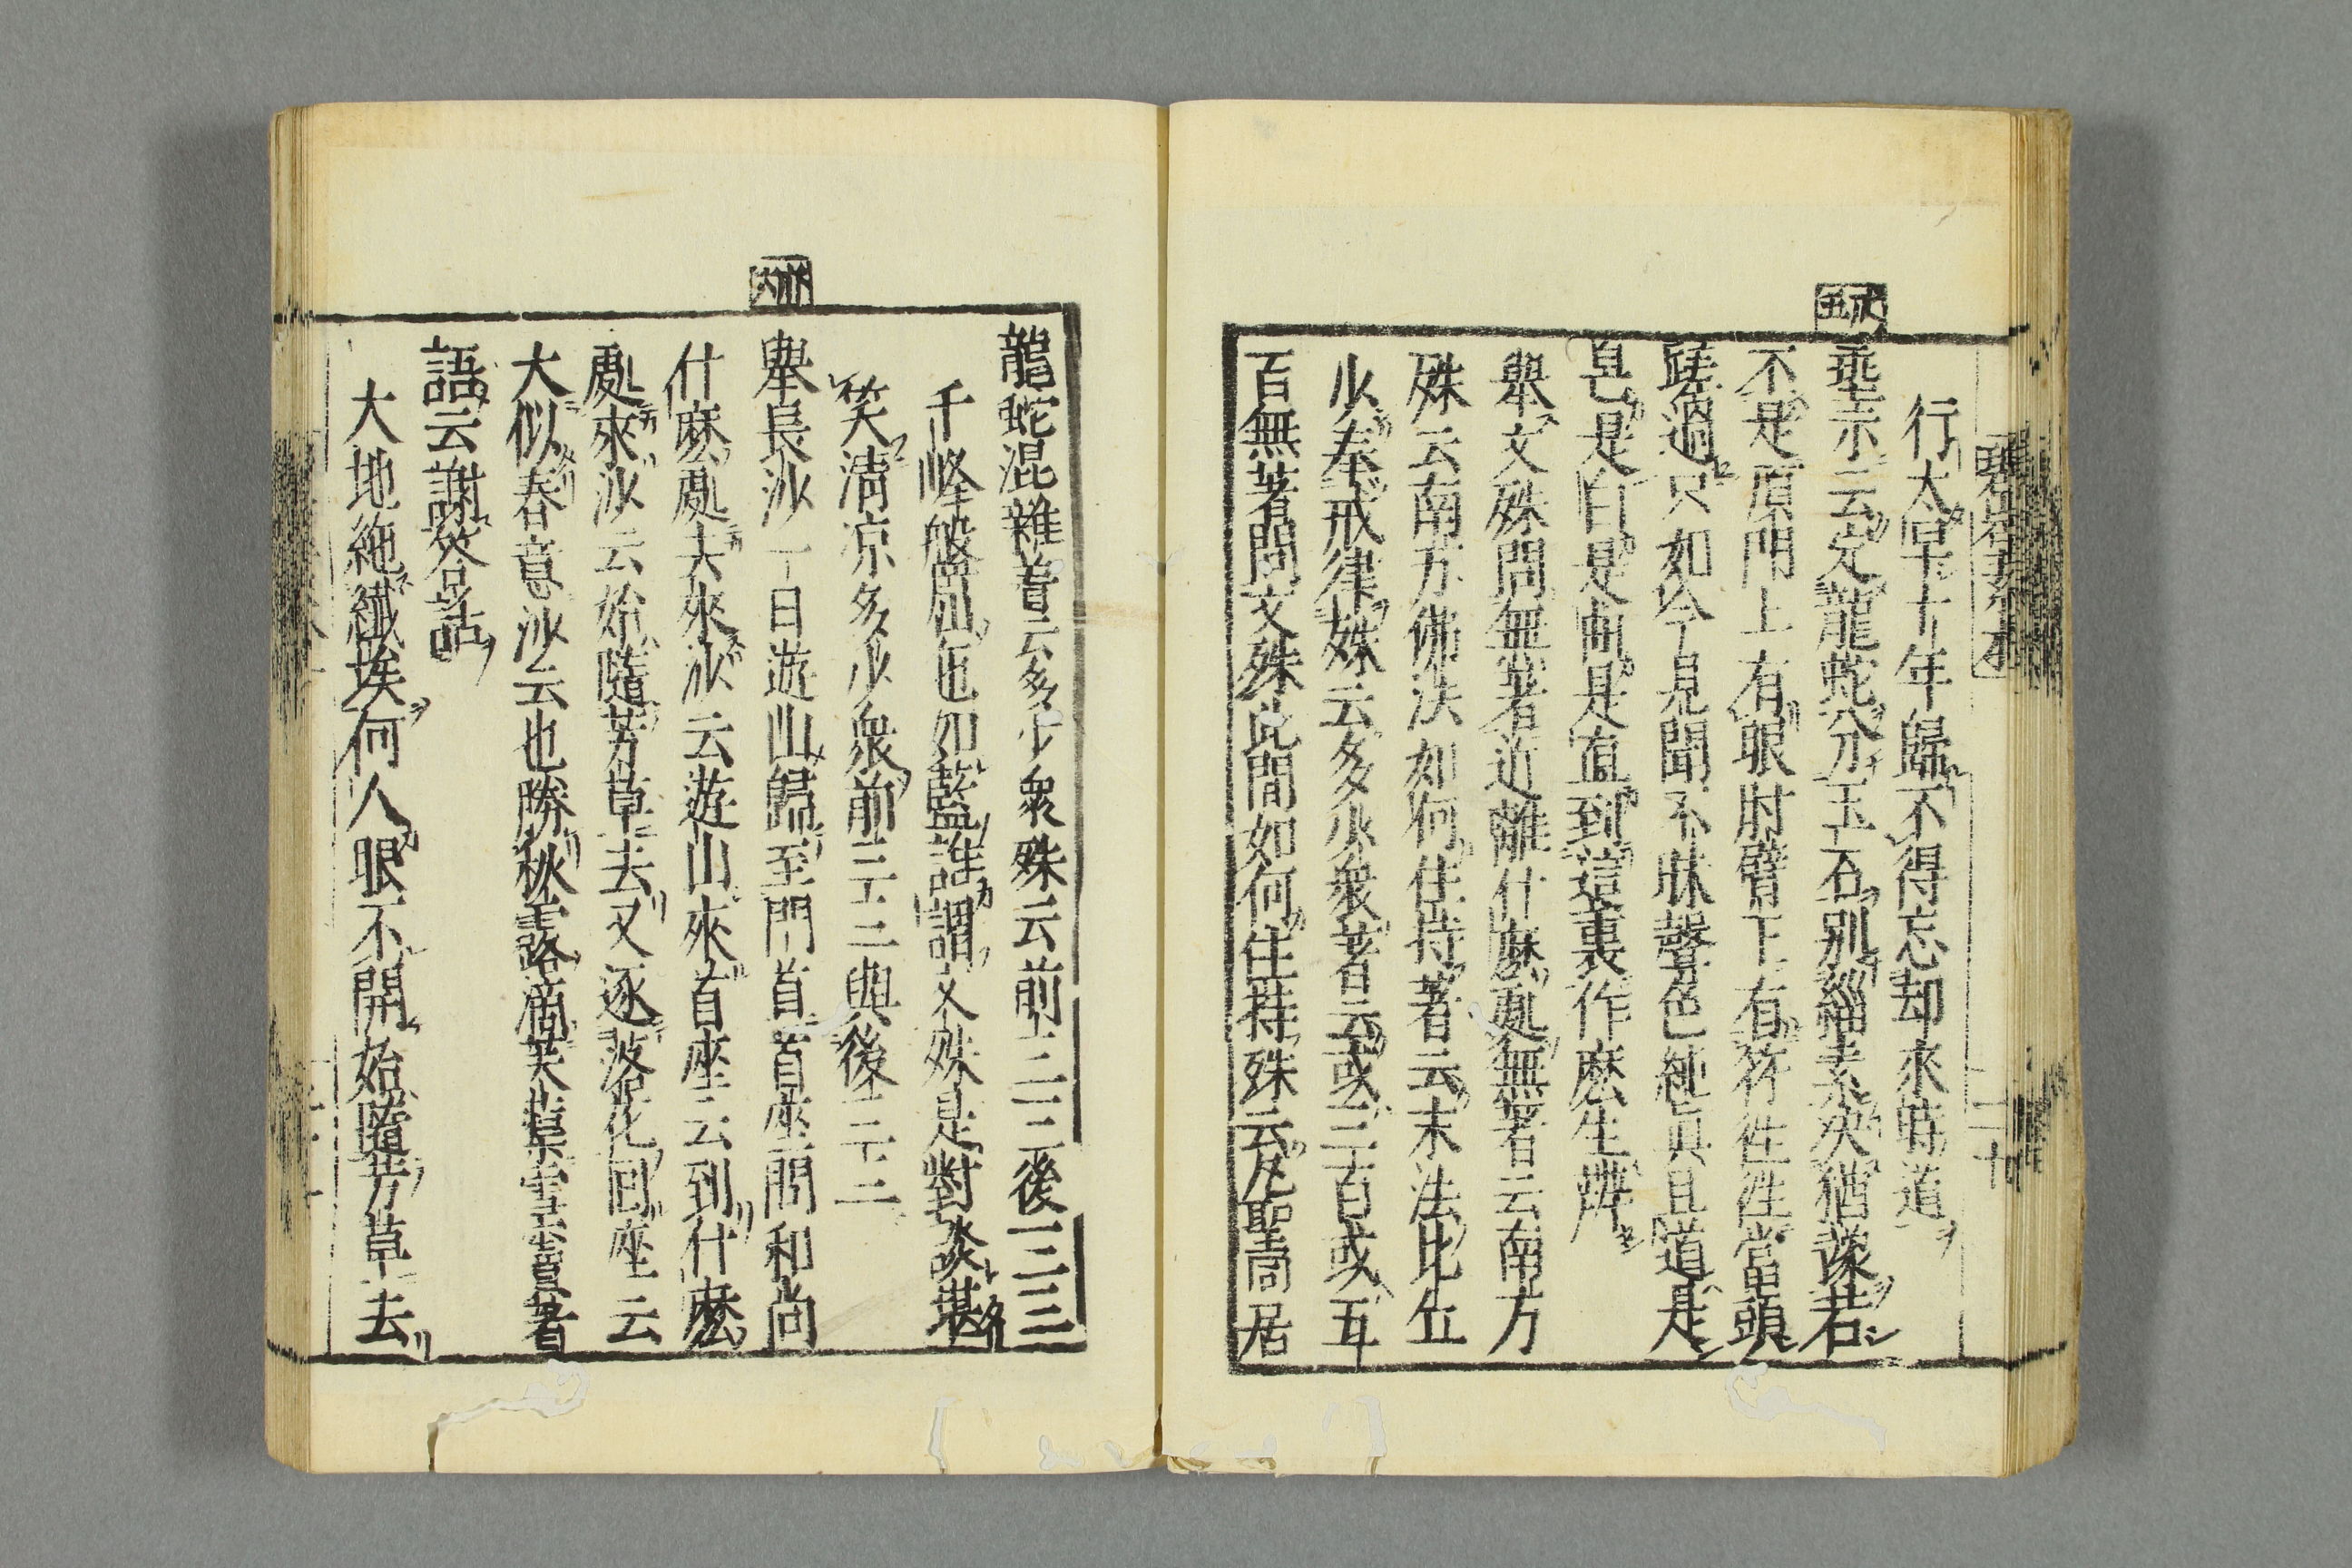 碧岩
二十
行太早十年歸不得忘却來時道
垂示云定龍蛇分玉石別緇素决猶豫若
不是頂門上有眼肘臂下有符徃徃當頭
蹉過只如今見聞不昧聲色純眞且道是
皂是白是曲是直到這裏作麽生辨
舉文殊問無著近離什麽處無著云南方
殊云南方佛法如何住持著云末法比丘
少奉戒律殊云多少衆著云或三百或五
百無著問文殊此間如何住持殊云凡聖同居
龍蛇混雜著云多少衆殊云前三三後三三
千峰盤屈色如藍誰謂文殊是對談堪
笑清凉多少衆前三三與後三三
舉長沙一日遊山歸至門首首座問和尚
什麽處去來沙云遊山來首座云到什麽
處來沙云始隨芳草去又逐落花回座云
大似春意沙云也勝秋露滴芙蕖雪竇著
語云謝答話
大地絶纖埃何人眼不開始隨芳草去